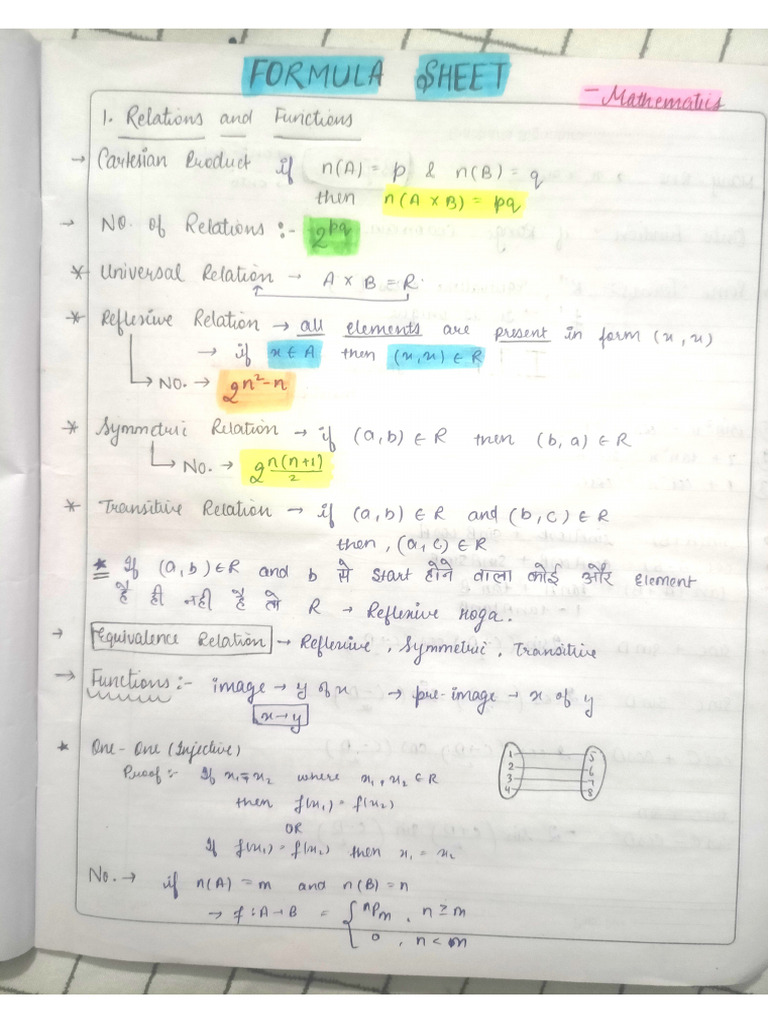 FORMULA SHEET
- Mathematics
1. Relations and Functions
→ Cartesian Product if n(A) = p & n(B) = q
then n(A × B) = pq
→ No. of Relations :- 2^pq
* Universal Relation → A × B = R.
* Reflexive Relation → all elements are present in form (x, x)
→ if x ∈ A then (x, x) ∈ R
→ No. → 2^n²-n
* Symmetric Relation → if (a, b) ∈ R then (b, a) ∈ R
→ No. → 2^n(n+1)/2
* Transitive Relation → if (a, b) ∈ R and (b, c) ∈ R
then, (a, c) ∈ R
* If (a, b) ∈ R and b से start होने वाला कोई और element
है ही नही है तो R → Reflexive Hoga.
→ Equivalence Relation → Reflexive, Symmetric, Transitive
→ Functions :- image → y of x → pre-image → x of y
x → y
* One - One (Injective)
1 5
2 6
3 7
4 8
Proof :- If x₁ = x₂ where x₁, x₂ ∈ R
then f(x₁) = f(x₂)
OR
If f(x₁) = f(x₂) then x₁ = x₂
No. → if n(A) = m and n(B) = n
→ f : A → B = { nPm, n ≥ m
0, n < m